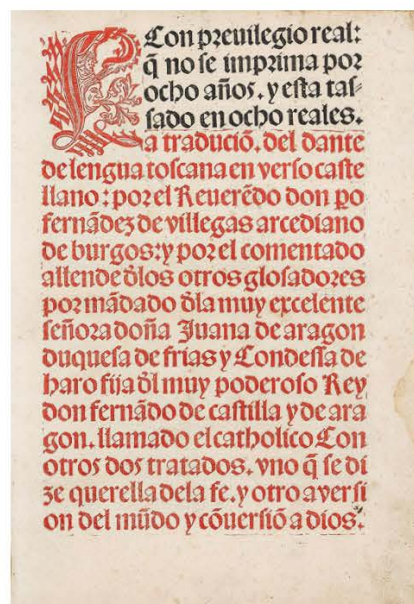 Con preuilegio real:
q̃ no se imprima por
ocho años. y esta tas-
sado en ocho reales.
La traduciõ. del dante
de lengua toscana en verso caste
llano: por el Reuerẽdo don po
fernãdez de villegas arcediano
de burgos: y por el comentado
allende d̃los otros glosadores
por mãdado d̃la muy excelente
señora doña Juana de aragon
duquesa de frias y Condessa de
haro fija d̃l muy poderoso Rey
don fernãdo de castilla y de ara
gon. llamado el catholico Con
otros dos tratados. vno q̃ se di
ze querella dela fe. y otro aversi
on del mũdo y cõuersiõ a dios.